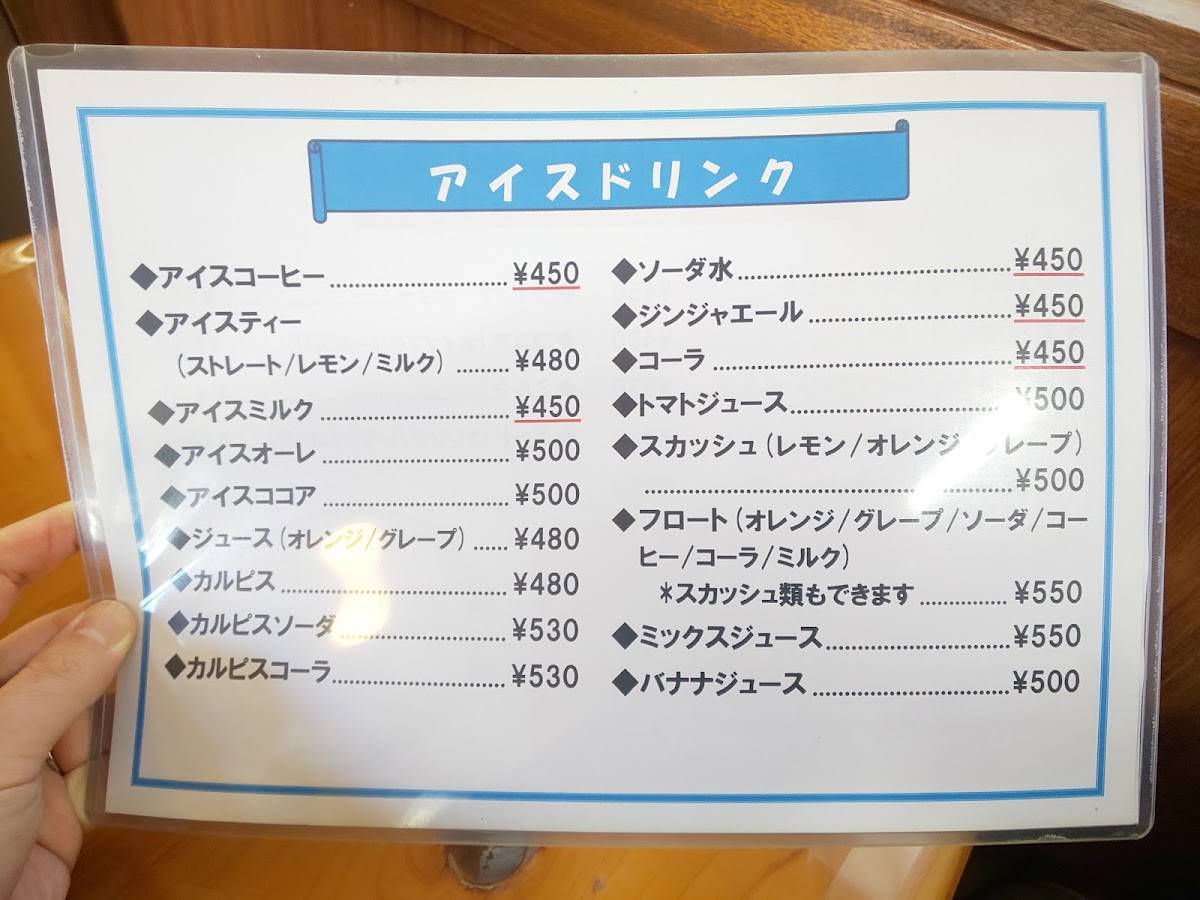 アイスドリンク
◆アイスコーヒー..............................¥450
◆アイスティー
(ストレート/レモン/ミルク) .........¥480
◆アイスミルク..............................¥450
◆アイスオーレ..............................¥500
◆アイスココア..............................¥500
◆ジュース(オレンジ/グレープ) ......¥480
◆カルピス..............................¥480
◆カルピスソーダ..............................¥530
◆カルピスコーラ..............................¥530
◆ソーダ水..............................¥450
◆ジンジャエール..............................¥450
◆コーラ..............................¥450
◆トマトジュース..............................¥500
◆スカッシュ(レモン/オレンジ/グレープ)
..............................¥500
◆フロート(オレンジ/グレープ/ソーダ/コー
ヒー/コーラ/ミルク)
*スカッシュ類もできます..............¥550
◆ミックスジュース..............................¥550
◆バナナジュース..............................¥500